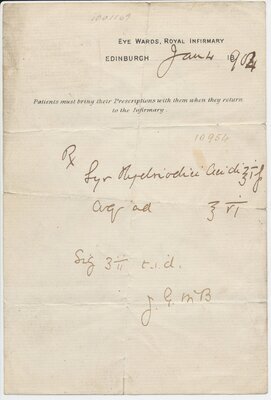 1001169
EYE WARDS, ROYAL INFIRMARY
EDINBURGH Jan 4 1904
Patients must bring their Prescriptions with them when they return
to the Infirmary.
10954
℞
Syr Hydriodici Acidi ℥
Aq ad ℥ vi
Sig ʒii t.i.d.
J. G. McB